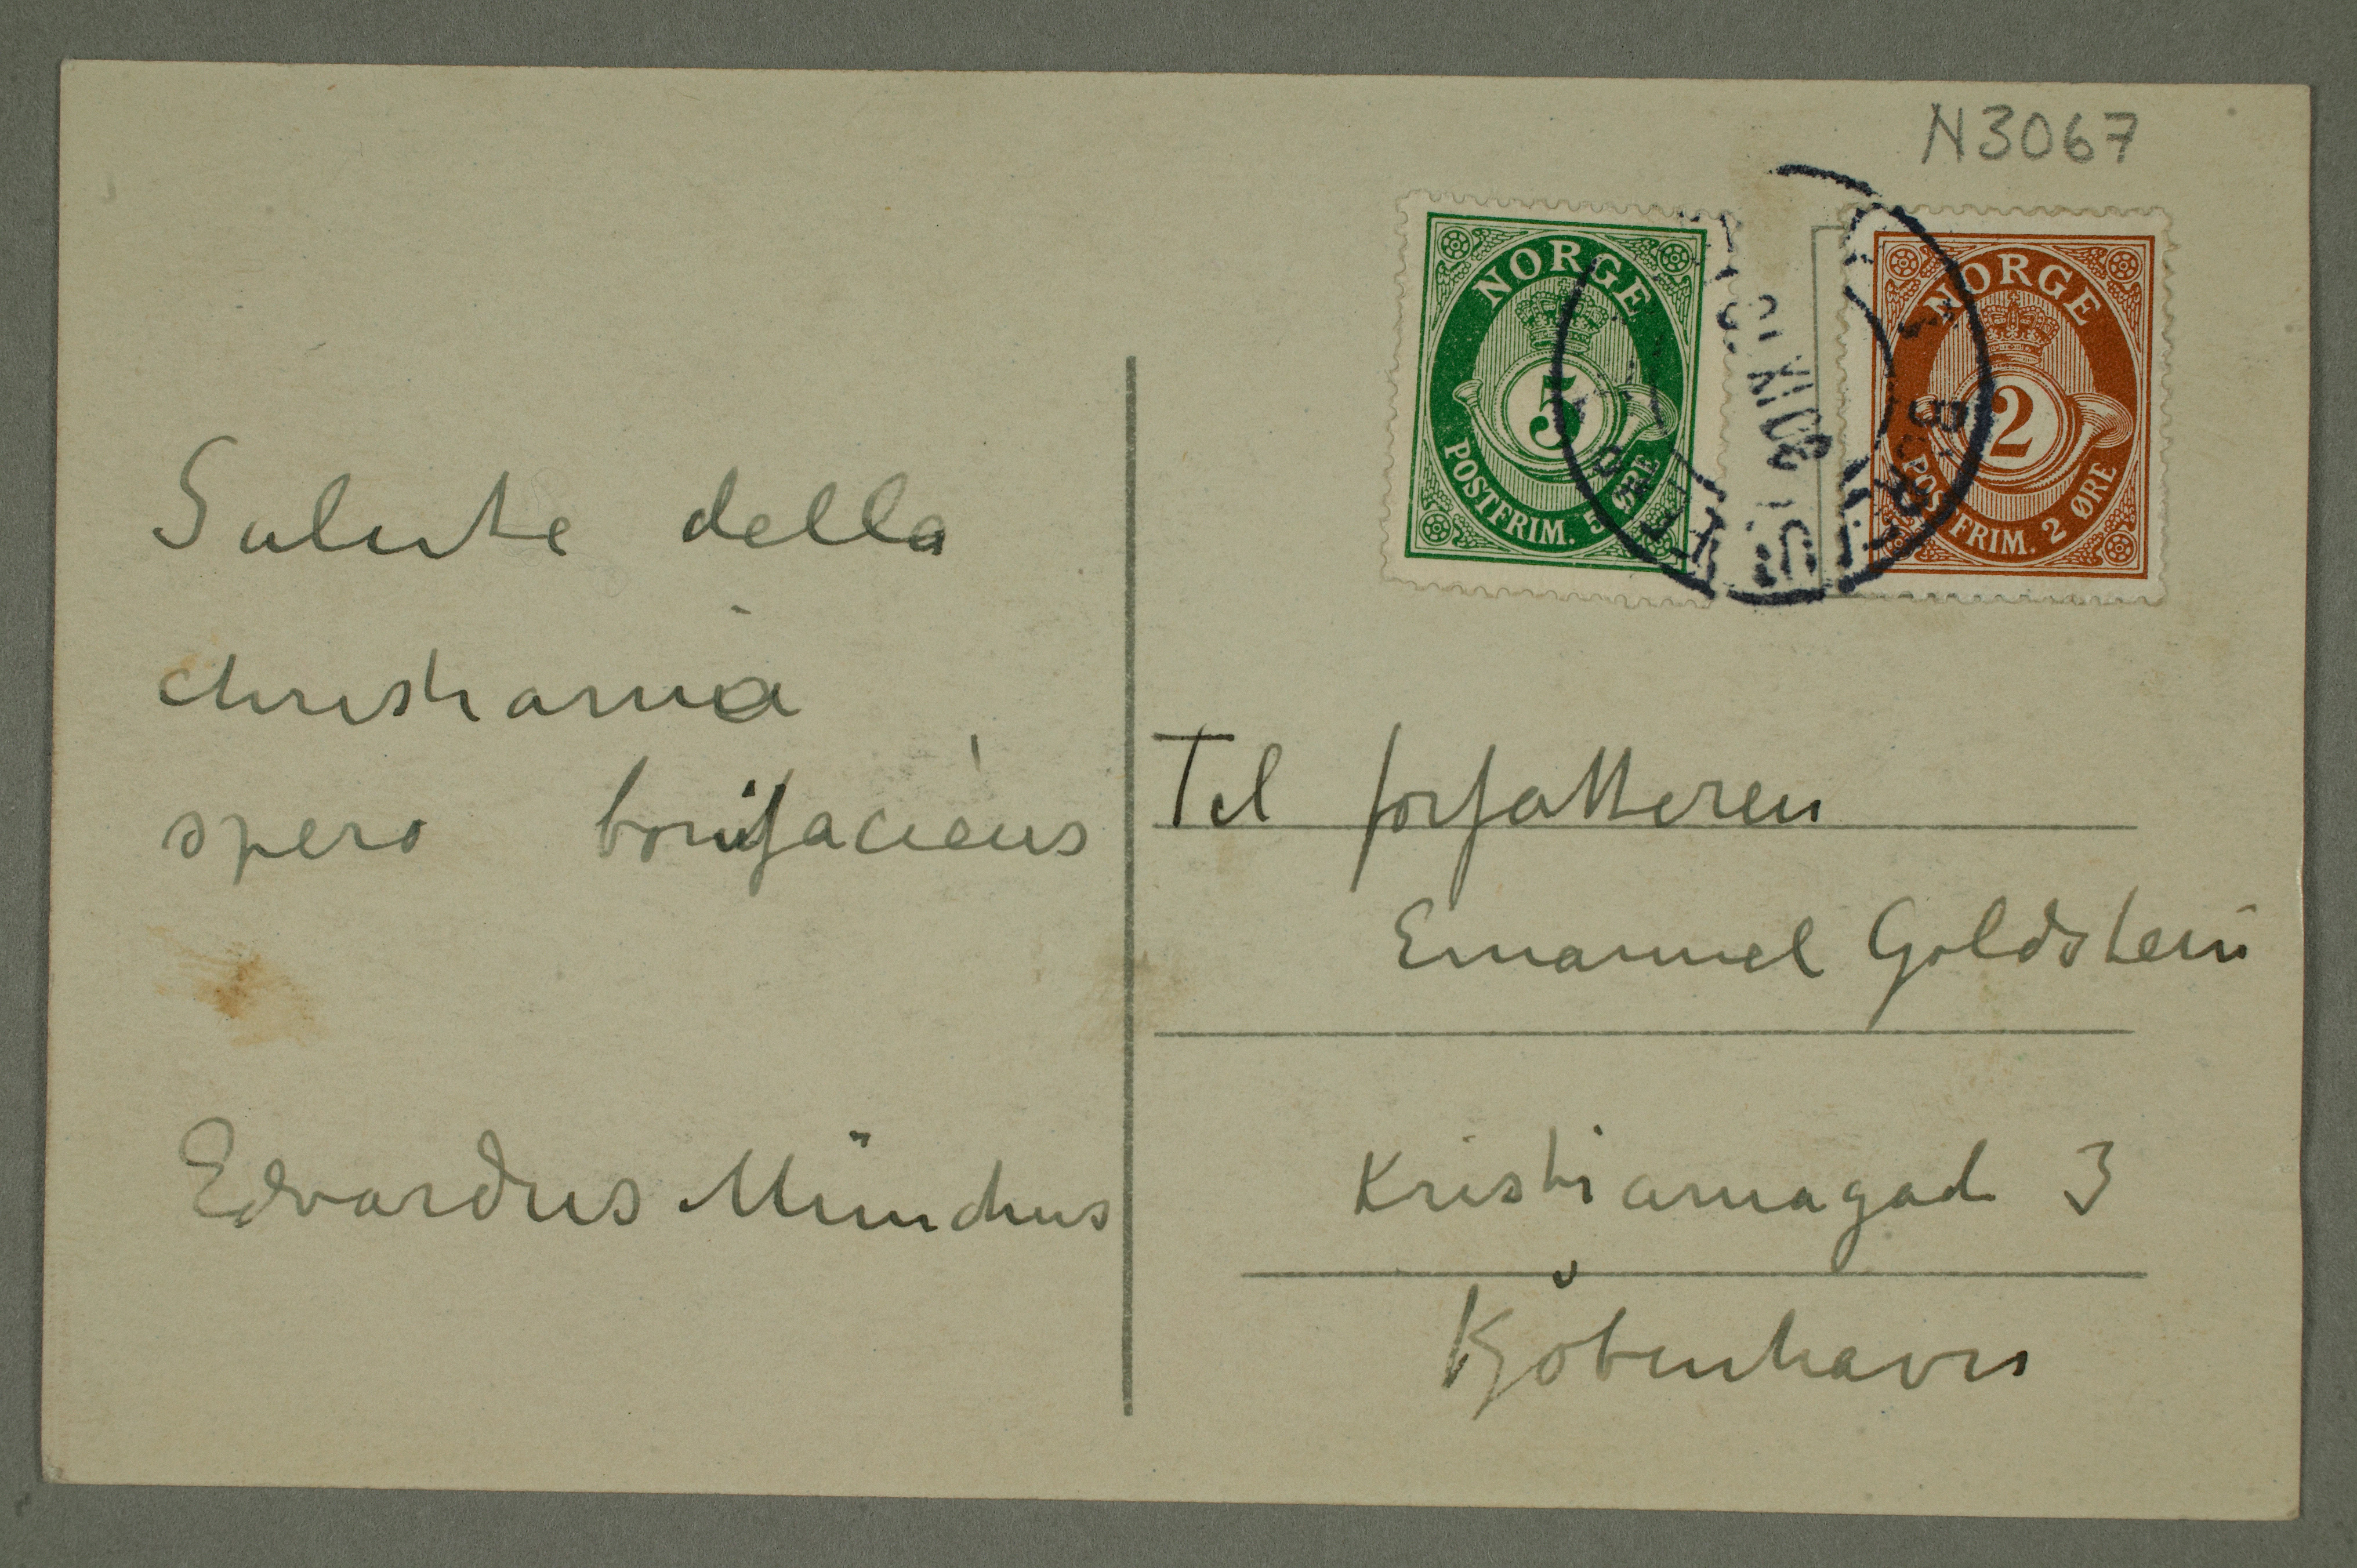 N3067
NORGE
5
POSTFRIM. 5 ØRE
NORGE
2
POSTFRIM. 2 ØRE
Salute della
christiania
spero bonifacièus
Edvardus Münchus
Til forfatteren
Emanuel Goldstein
Kristianiagade 3
Kjøbenhavn